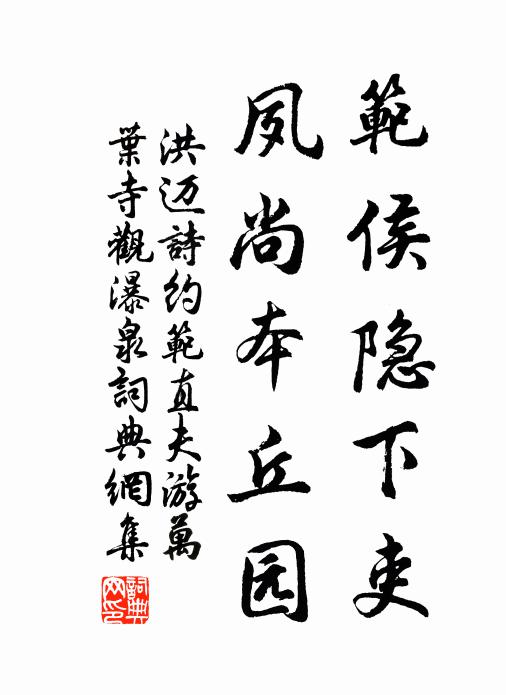 範侯隐下吏
夙尚本丘园
洪迈詩约範直夫游萬
葉寺觀瀑泉詞典網集
詞典網印